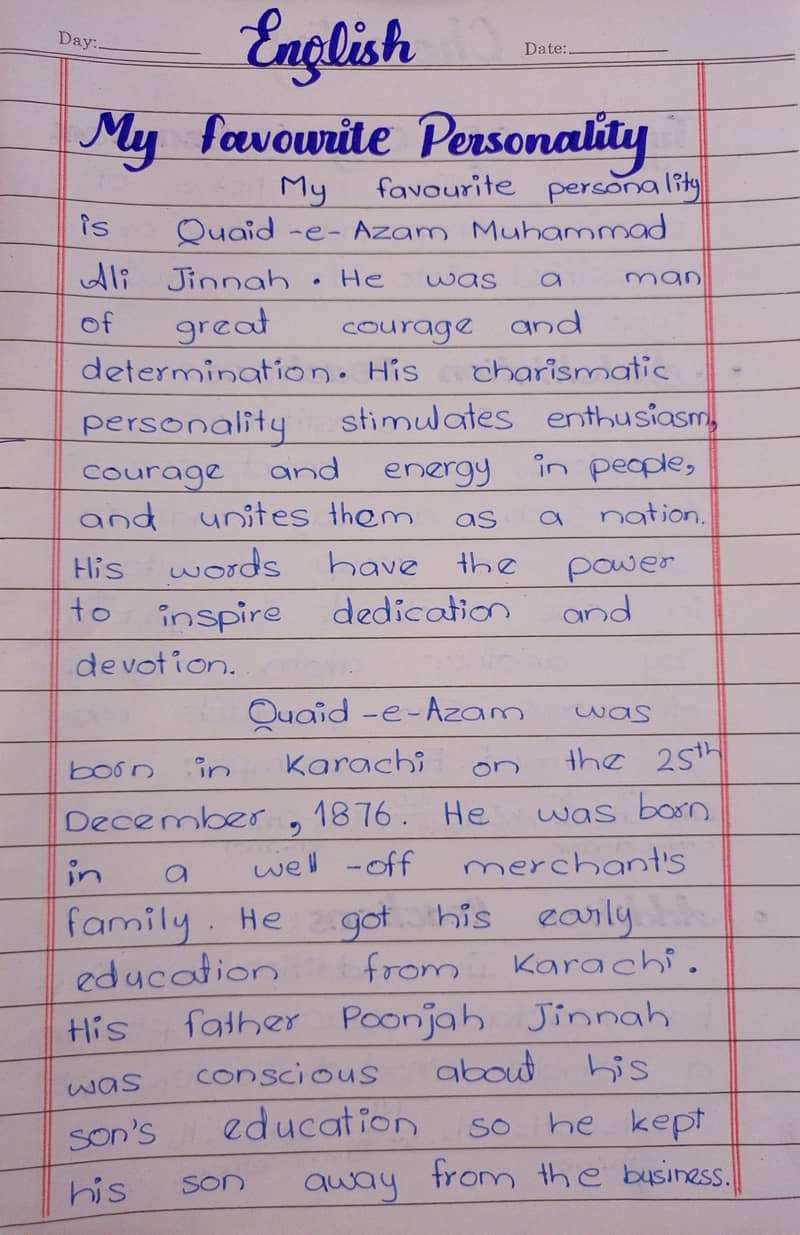 Day:
English
Date:
My favourite Personality
My favourite personality
is Quaid-e-Azam Muhammad
Ali Jinnah. He was a man
of great courage and
determination. His charismatic
personality stimulates enthusiasm,
courage and energy in people,
and unites them as a nation.
His words have the power
to inspire dedication and
devotion.
Quaid-e-Azam was
born in Karachi on the 25th
December, 1876. He was born
in a well-off merchant's
family. He got his early
education from Karachi.
His father Poonjah Jinnah
was conscious about his
son's education so he kept
his son away from the business.